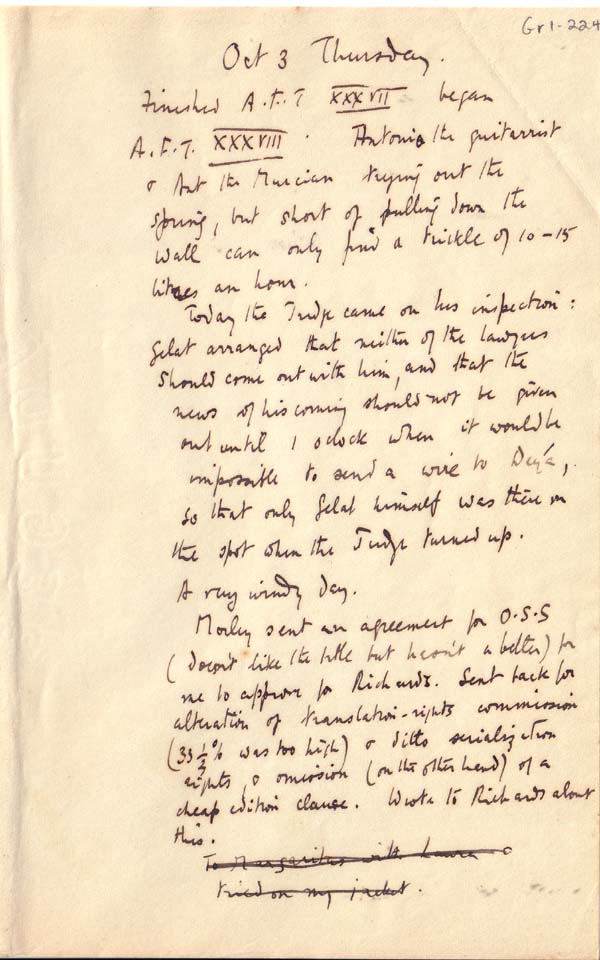 Gr1-224
Oct 3 Thursday.
Finished A.F.T XXXVII began
A.F.T. XXXVIII . Antonio the guitarrist
& Ant the Murcian trying out the
spring, but short of pulling down the
wall can only find a trickle of 10-15
litres an hour.
Today the Judge came on his inspection:
Gelat arranged that neither of the lawyers
should come out with him, and that the
news of his coming should not be given
out until 1 oclock when it would be
impossible to send a wire to Deyá,
so that only Gelat himself was there on
the spot when the Judge turned up.
A very windy day.
Morley sent an agreement for O.S.S
(doesn't like the title but hasn't a better) for
me to approve for Richards. Sent back for
alteration of translation-rights commission
(33 1/3% was too high) & ditto serialization
rights, & omission (on the other hand) of a
cheap edition clause. Wrote to Richards about
this.
To Margaritas with Laura &
tried on my jacket.